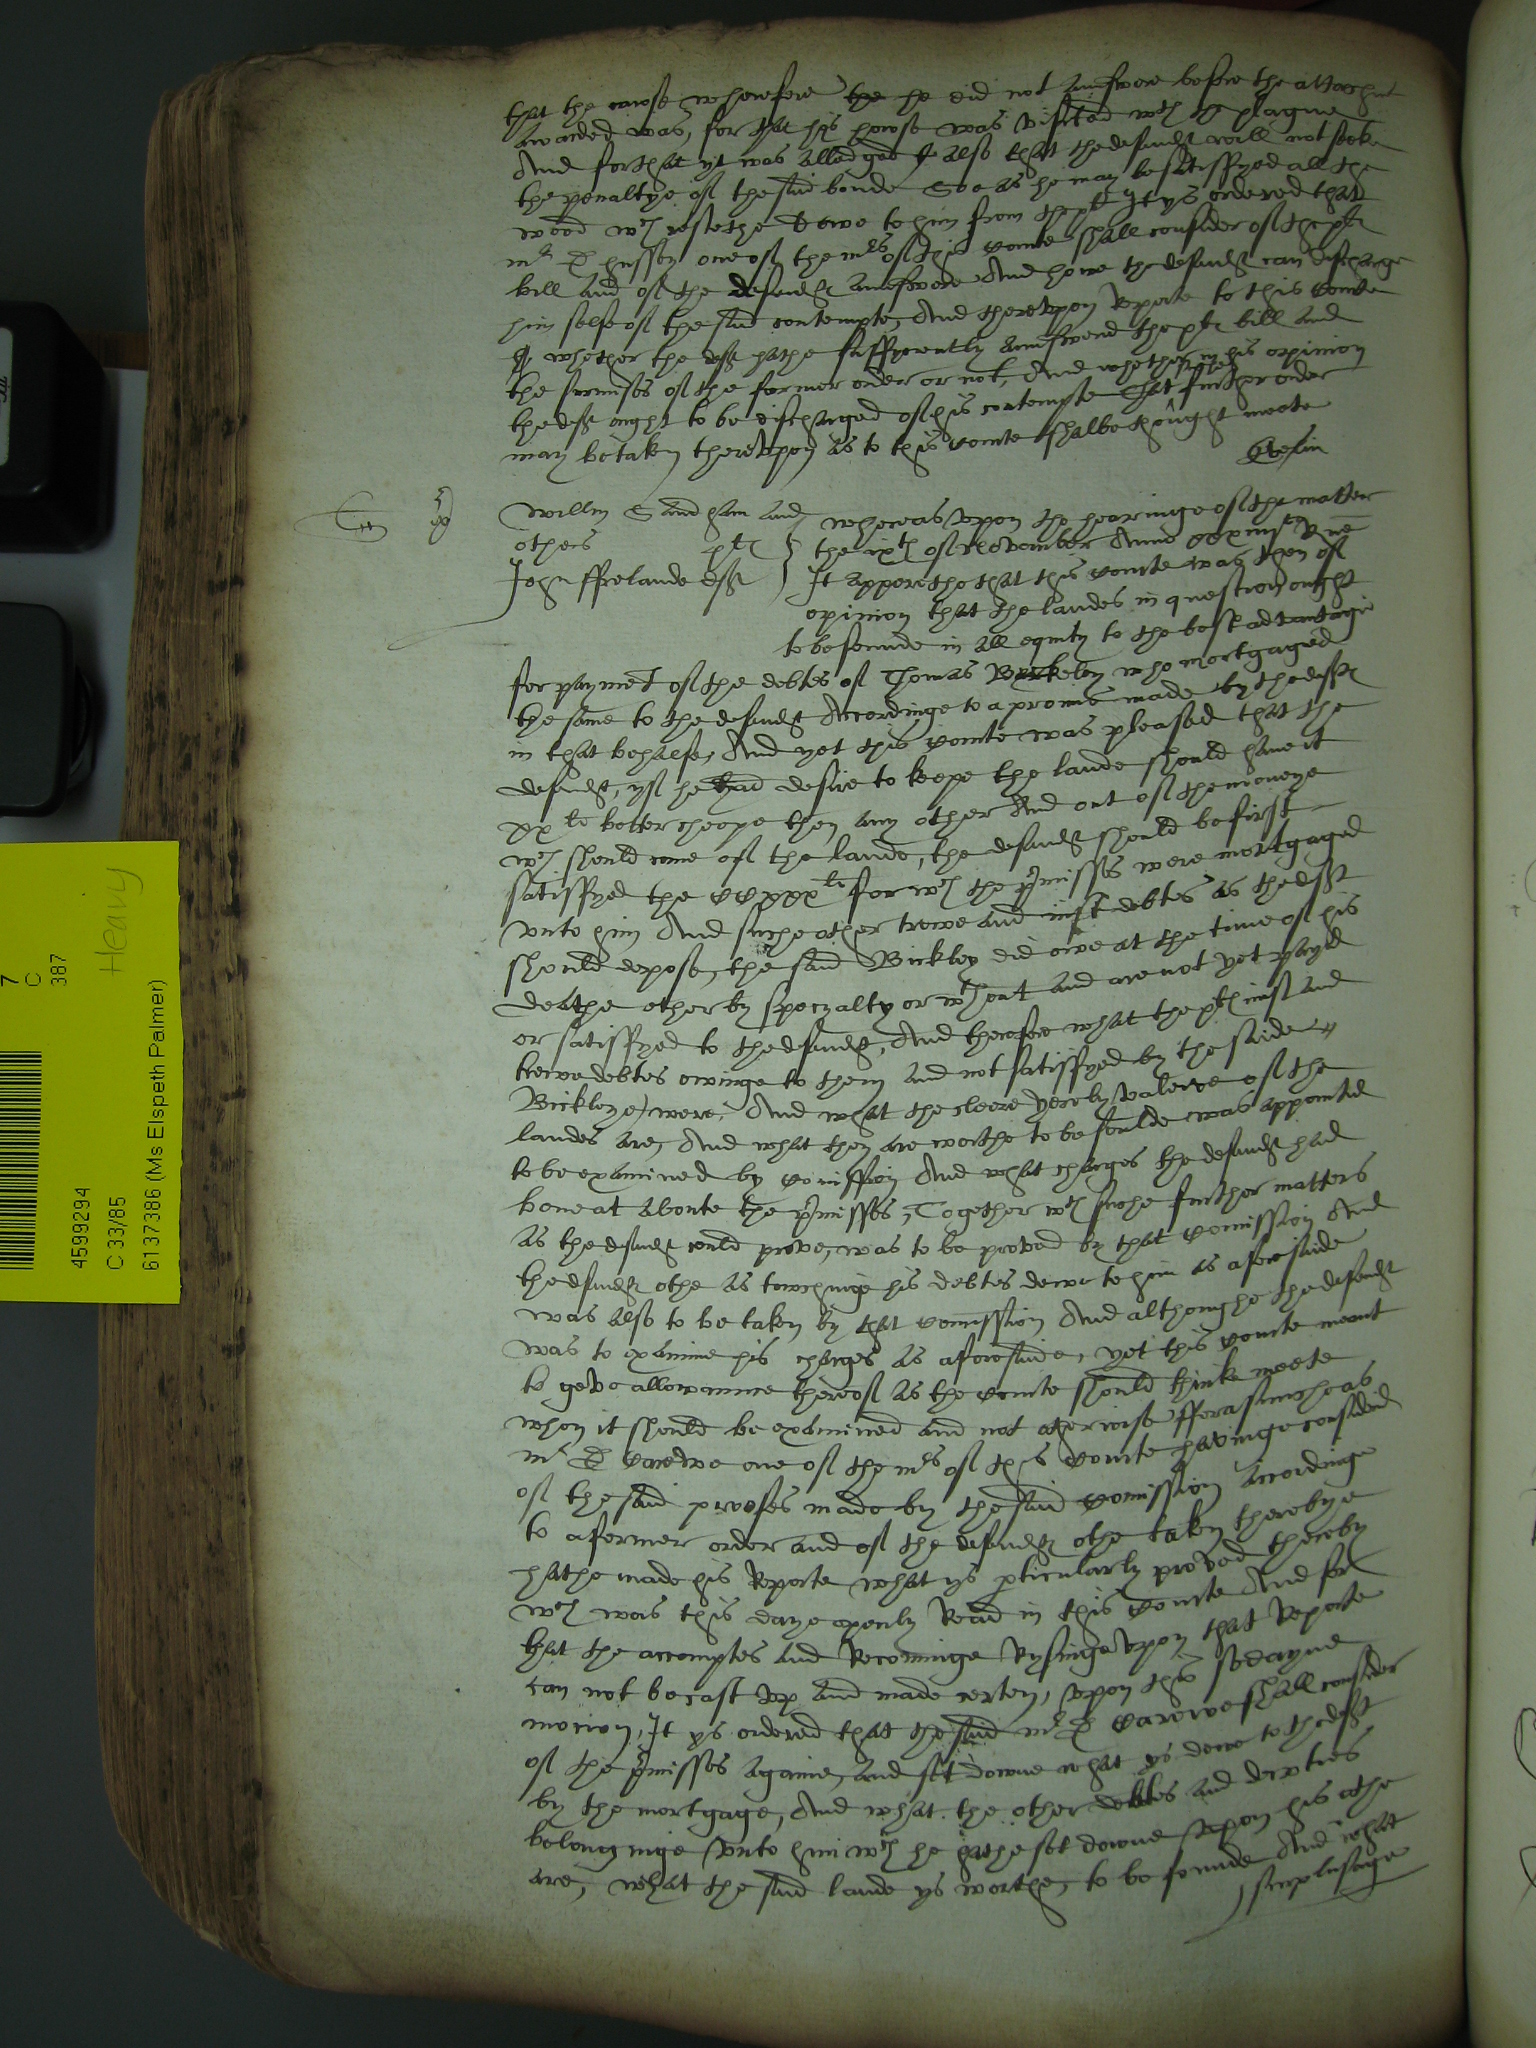 that the cause wherefore he did not aunswere before the attachmt
awarded was, for that his howse was visited wth the plague
And for that yt was alledged & also that the defendt will not seeke
the penaltye of the said bonde Soe as he may be satisfyed all the
wood wch restethe dewe to him from the plt It ys ordered that
mr D hussey one of the mrs of this Courte shall consider of the plts
bill and of the defendts aunswere And howe the defendt can discharge
him selfe of the said contempte, And thereupon Reporte to this Courte
whether the deft hathe sufficyently aunswered the plts bill and
the surmises of the former order or not, And whether in his opinion
the deft ought to be discharged of his contempte That further order
may be taken thereupon as to this Courte shalbe thought meete
Willm Sandham and
others plts
John ffrelande deft
whereas upon the hearinge of the matter
the ixth of November Anno
It apperethe that this Courte was then of
opinion that the landes in question ought
to be soulde in all equity to the best advantage
for paymet of the debtes of Thomas Bickeley who mortgaged
the same to the defendt Accordinge to a promis made by the deft
in that behalfe, And yet this Courte was pleased that the
defendt, yf he had desire to keepe the lande should have it
xxli better cheape then any other And out of the moneye
wch should come of the lande, the defendt should be first
satisfyed the CCxxxli for wch the pmisses were mortgaged
unto him And suche other trewe and iust debtes as the deft
should depose, the said Bickley did owe at the time of his
deathe other by specyalty or wthout and are not yet payed
or satisfyed to the defendt, And therefore what the plts iust and
trewe debtes owinge to them and not satisfyed by the saide
Bickleye were, And what the cleere yerely valewe of the
landes are, And what they are worthe to be soulde was appointed
to be examined by Comission And what charges the defendt had
bene at aboute the pmisses, Together wth suche further matters
as the defendt could prove, was to be proved by that Comission And
the defendts othe as towchinge his debtes dewe to him as aforesaide
was also to be taken by that Comission And althoughe the defendt
was to examine his charges as aforesaide, yet this Courte meant
to geve allowaunce thereof as the Courte should thinke meete
when it should be examined and not otherwise fforasmuche as
mr D Carewe one of the mrs of this Courte havinge considered
of the said proofes made by the said Comission accordinge
to a former order and of the defendts othe taken thereby
hathe made his Reporte what ys pticularly proved thereby
wch was this daye openly Read in this Courte And for
that the accomptes and Reconinge Rysinge upon that Reporte
can not be cast up and made certen, upon this sodayne
mocion, It ys ordered that the said mr D Carewe shall consider
of the pmisses againe, and set downe what ys dewe to the deft
by the mortgage, And what the other debtes and dewties
belonginge unto him wch he hathe set downe upon his othe
are, what the said lande ys worthe, to be soulde And what
surplusage
Heavy
7
C
387
4599294
C 33/85
6137386 (Ms Elspeth Palmer)